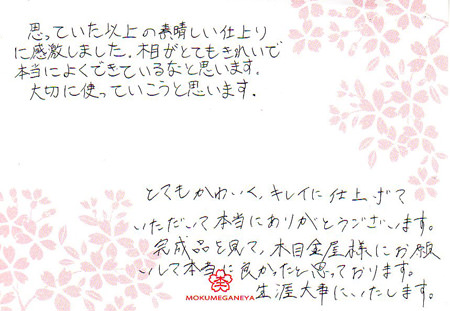 思っていた以上の素晴しい仕上り
に感激しました。木目がとてもきれいで
本当によくできているなと思います。
大切に使っていこうと思います。
とてもかわいく、キレイに仕上げて
いただいて本当にありがとうございます。
完成品を見て、木目金屋様にお願
いして本当に良かったと思っております。
生涯大事にいたします。
MOKUMEGANEYA